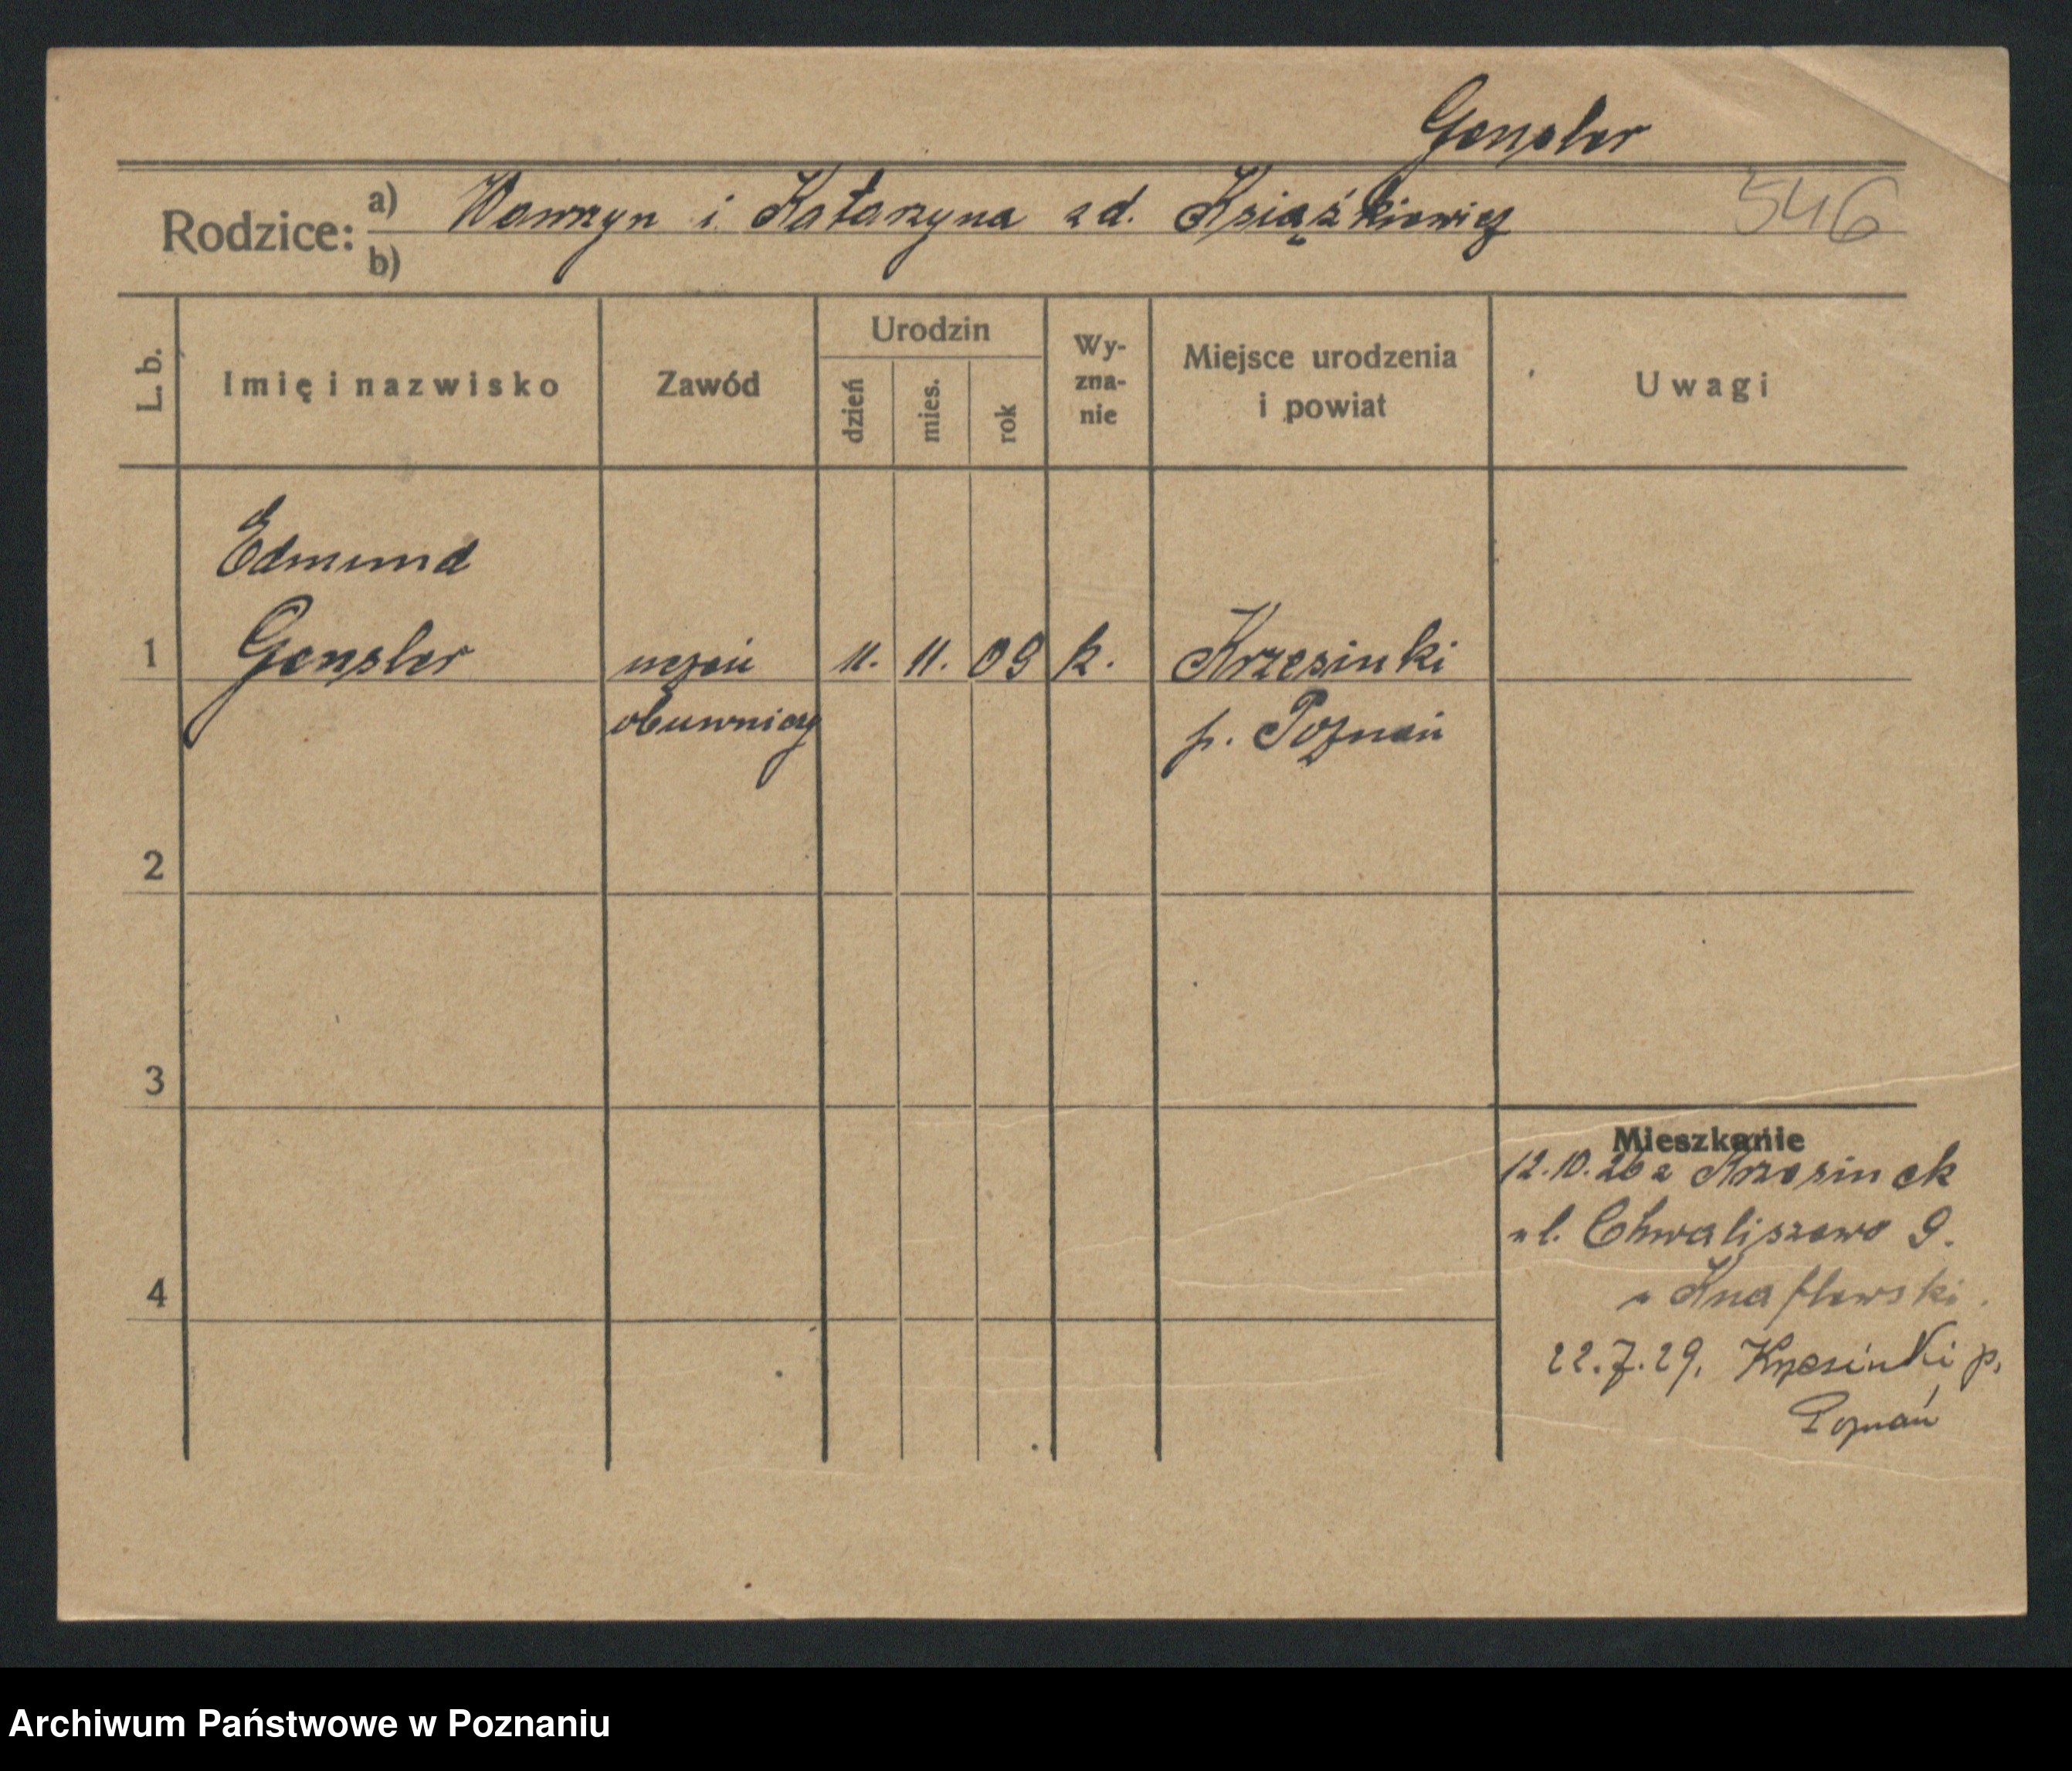 Gensler
Rodzice: a) Wawrzyn i Katarzyna zd. Książkiewicz 546
b)
L. b. Imię i nazwisko Zawód Urodzin dzień mies. rok Wy-zna-nie Miejsce urodzenia i powiat Uwagi
Edmund
1 Gensler uczeń 11. 11. 09 k. Krzesinki
obuwniczy p. Poznań
2
3
Mieszkanie
12.10.26 z Krzesinek
ul. Chwaliszewo 9.
4 u Knaflewski.
22.7.29. Krzesinki p.
Poznań
Archiwum Państwowe w Poznaniu